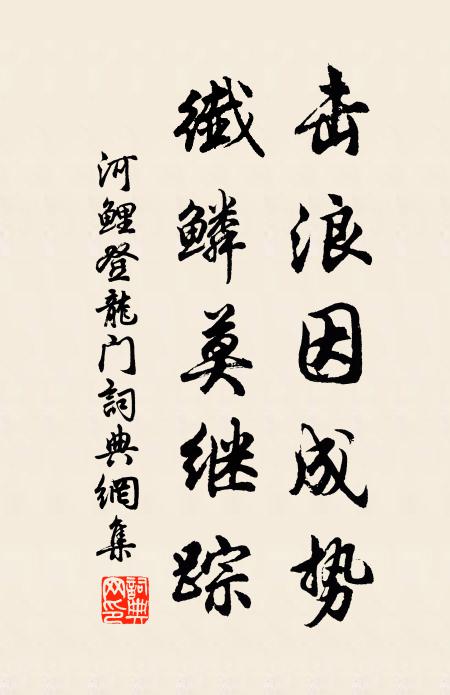 击浪因成势
纖鳞莫继踪
河鲤登龍门詞典網集
詞典网印